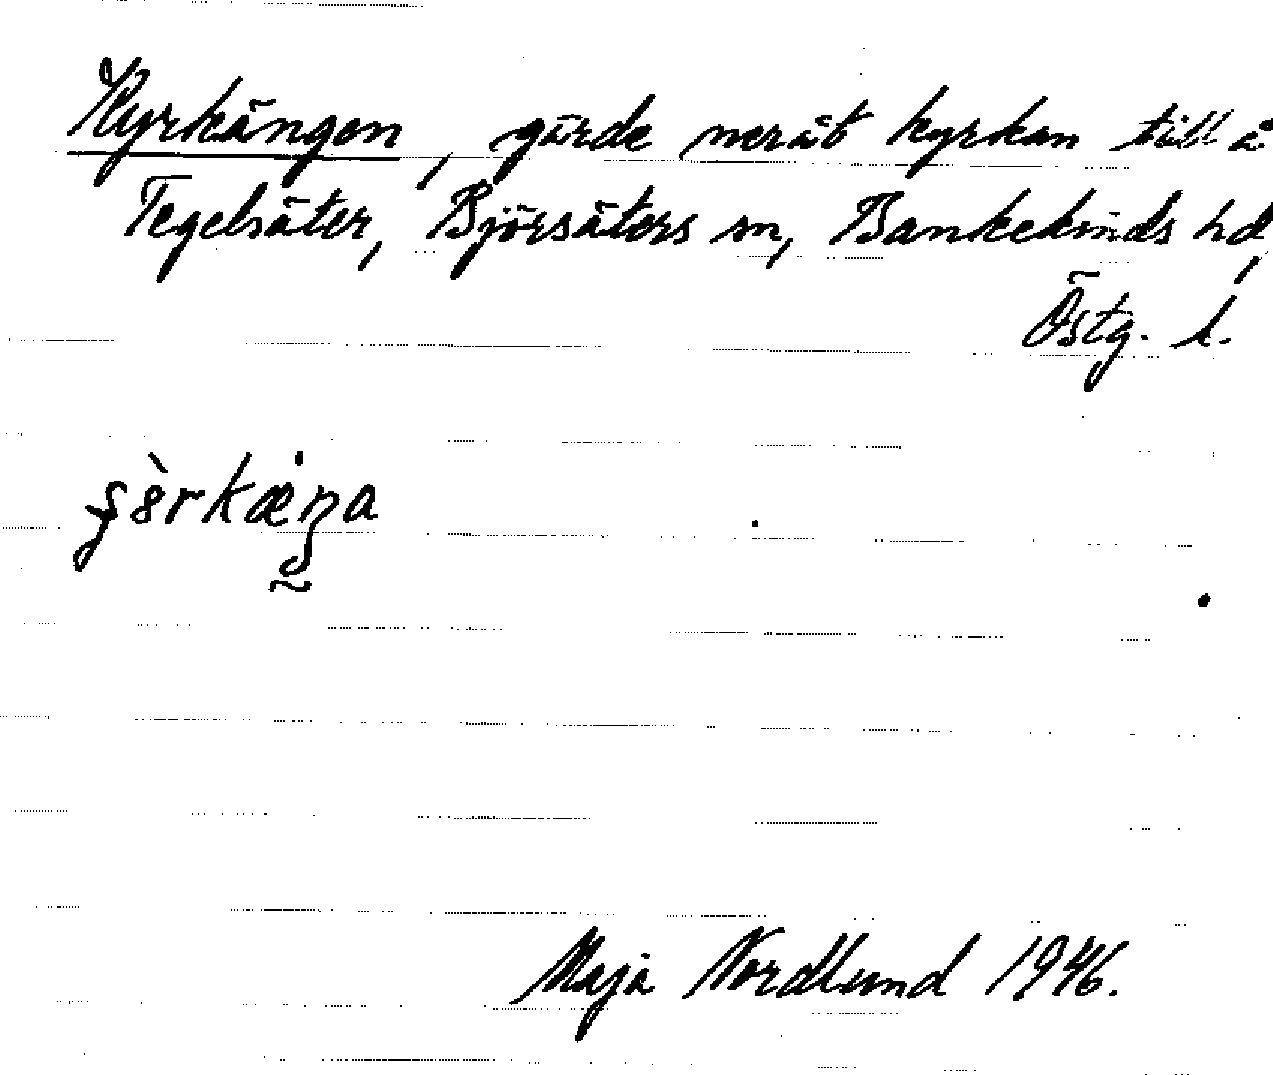 Kyrkängen, gärde neråt kyrkan till å
Tegelsäter, Björsäters sn, Bankekinds hd,
Östg. l.
Maja Nordlund 1946.